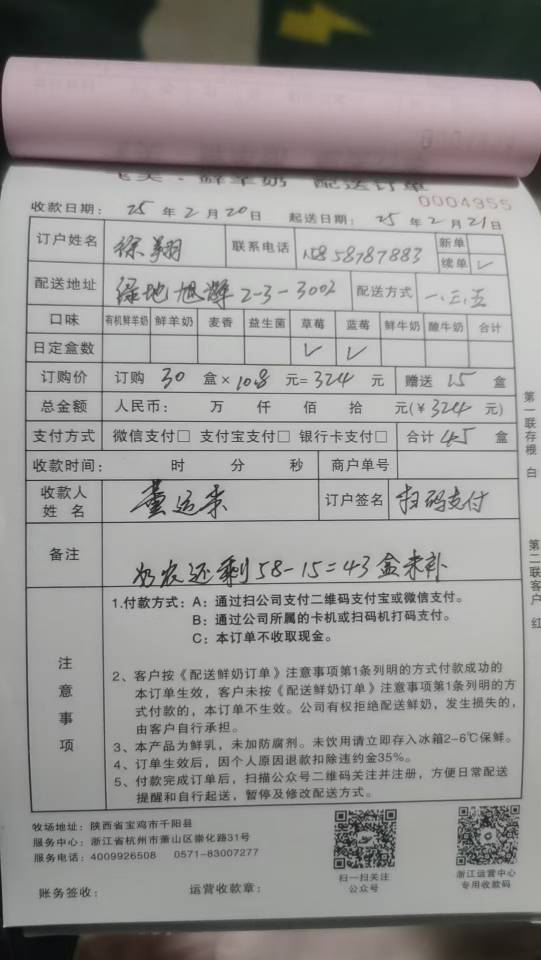 鲜羊奶 配送订单
0004955
收款日期： 25 年 2 月 20 日 起送日期： 25 年 2 月 21 日
订户姓名 徐翔 联系电话 15858787883 新单
续单 √
配送地址 绿地旭辉 2-3-3002 配送方式 一.三.五
口味 有机鲜羊奶 鲜羊奶 麦香 益生菌 草莓 蓝莓 鲜牛奶 酸牛奶 合计
日定盒数 √ √
订购价 订购 30 盒× 10.8 元= 324 元 赠送 15 盒
总金额 人民币： 万 仟 佰 拾 元(￥ 324 元)
支付方式 微信支付□ 支付宝支付□ 银行卡支付□ 合计 45 盒
收款时间： 时 分 秒 商户单号
收款人姓名 董运 订户签名 扫码支付
备注 还剩58-15=43盒未补
注意事项
1.付款方式：A：通过扫公司支付二维码支付宝或微信支付。
B：通过公司所属的卡机或扫码机打码支付。
C：本订单不收取现金。
2、客户按《配送鲜奶订单》注意事项第1条列明的方式付款成功的
本订单生效，客户未按《配送鲜奶订单》注意事项第1条列明的方
式付款的，本订单不生效。公司有权拒绝配送鲜奶，发生损失的，
由客户自行承担。
3、本产品为鲜乳，未加防腐剂。未饮用请立即存入冰箱2-6℃保鲜。
4、订单生效后，因个人原因退款扣除违约金35%。
5、付款完成订单后，扫描公众号二维码关注并注册，方便日常配送
提醒和自行起送，暂停及修改配送方式。
第一联存根 白
第二联客户 红
牧场地址：陕西省宝鸡市千阳县
服务中心：浙江省杭州市萧山区崇化路31号
服务电话：4009926508 0571-83007277
扫一扫关注
公众号
浙江运营中心
专用收款码
账务签收： 运营收款章：